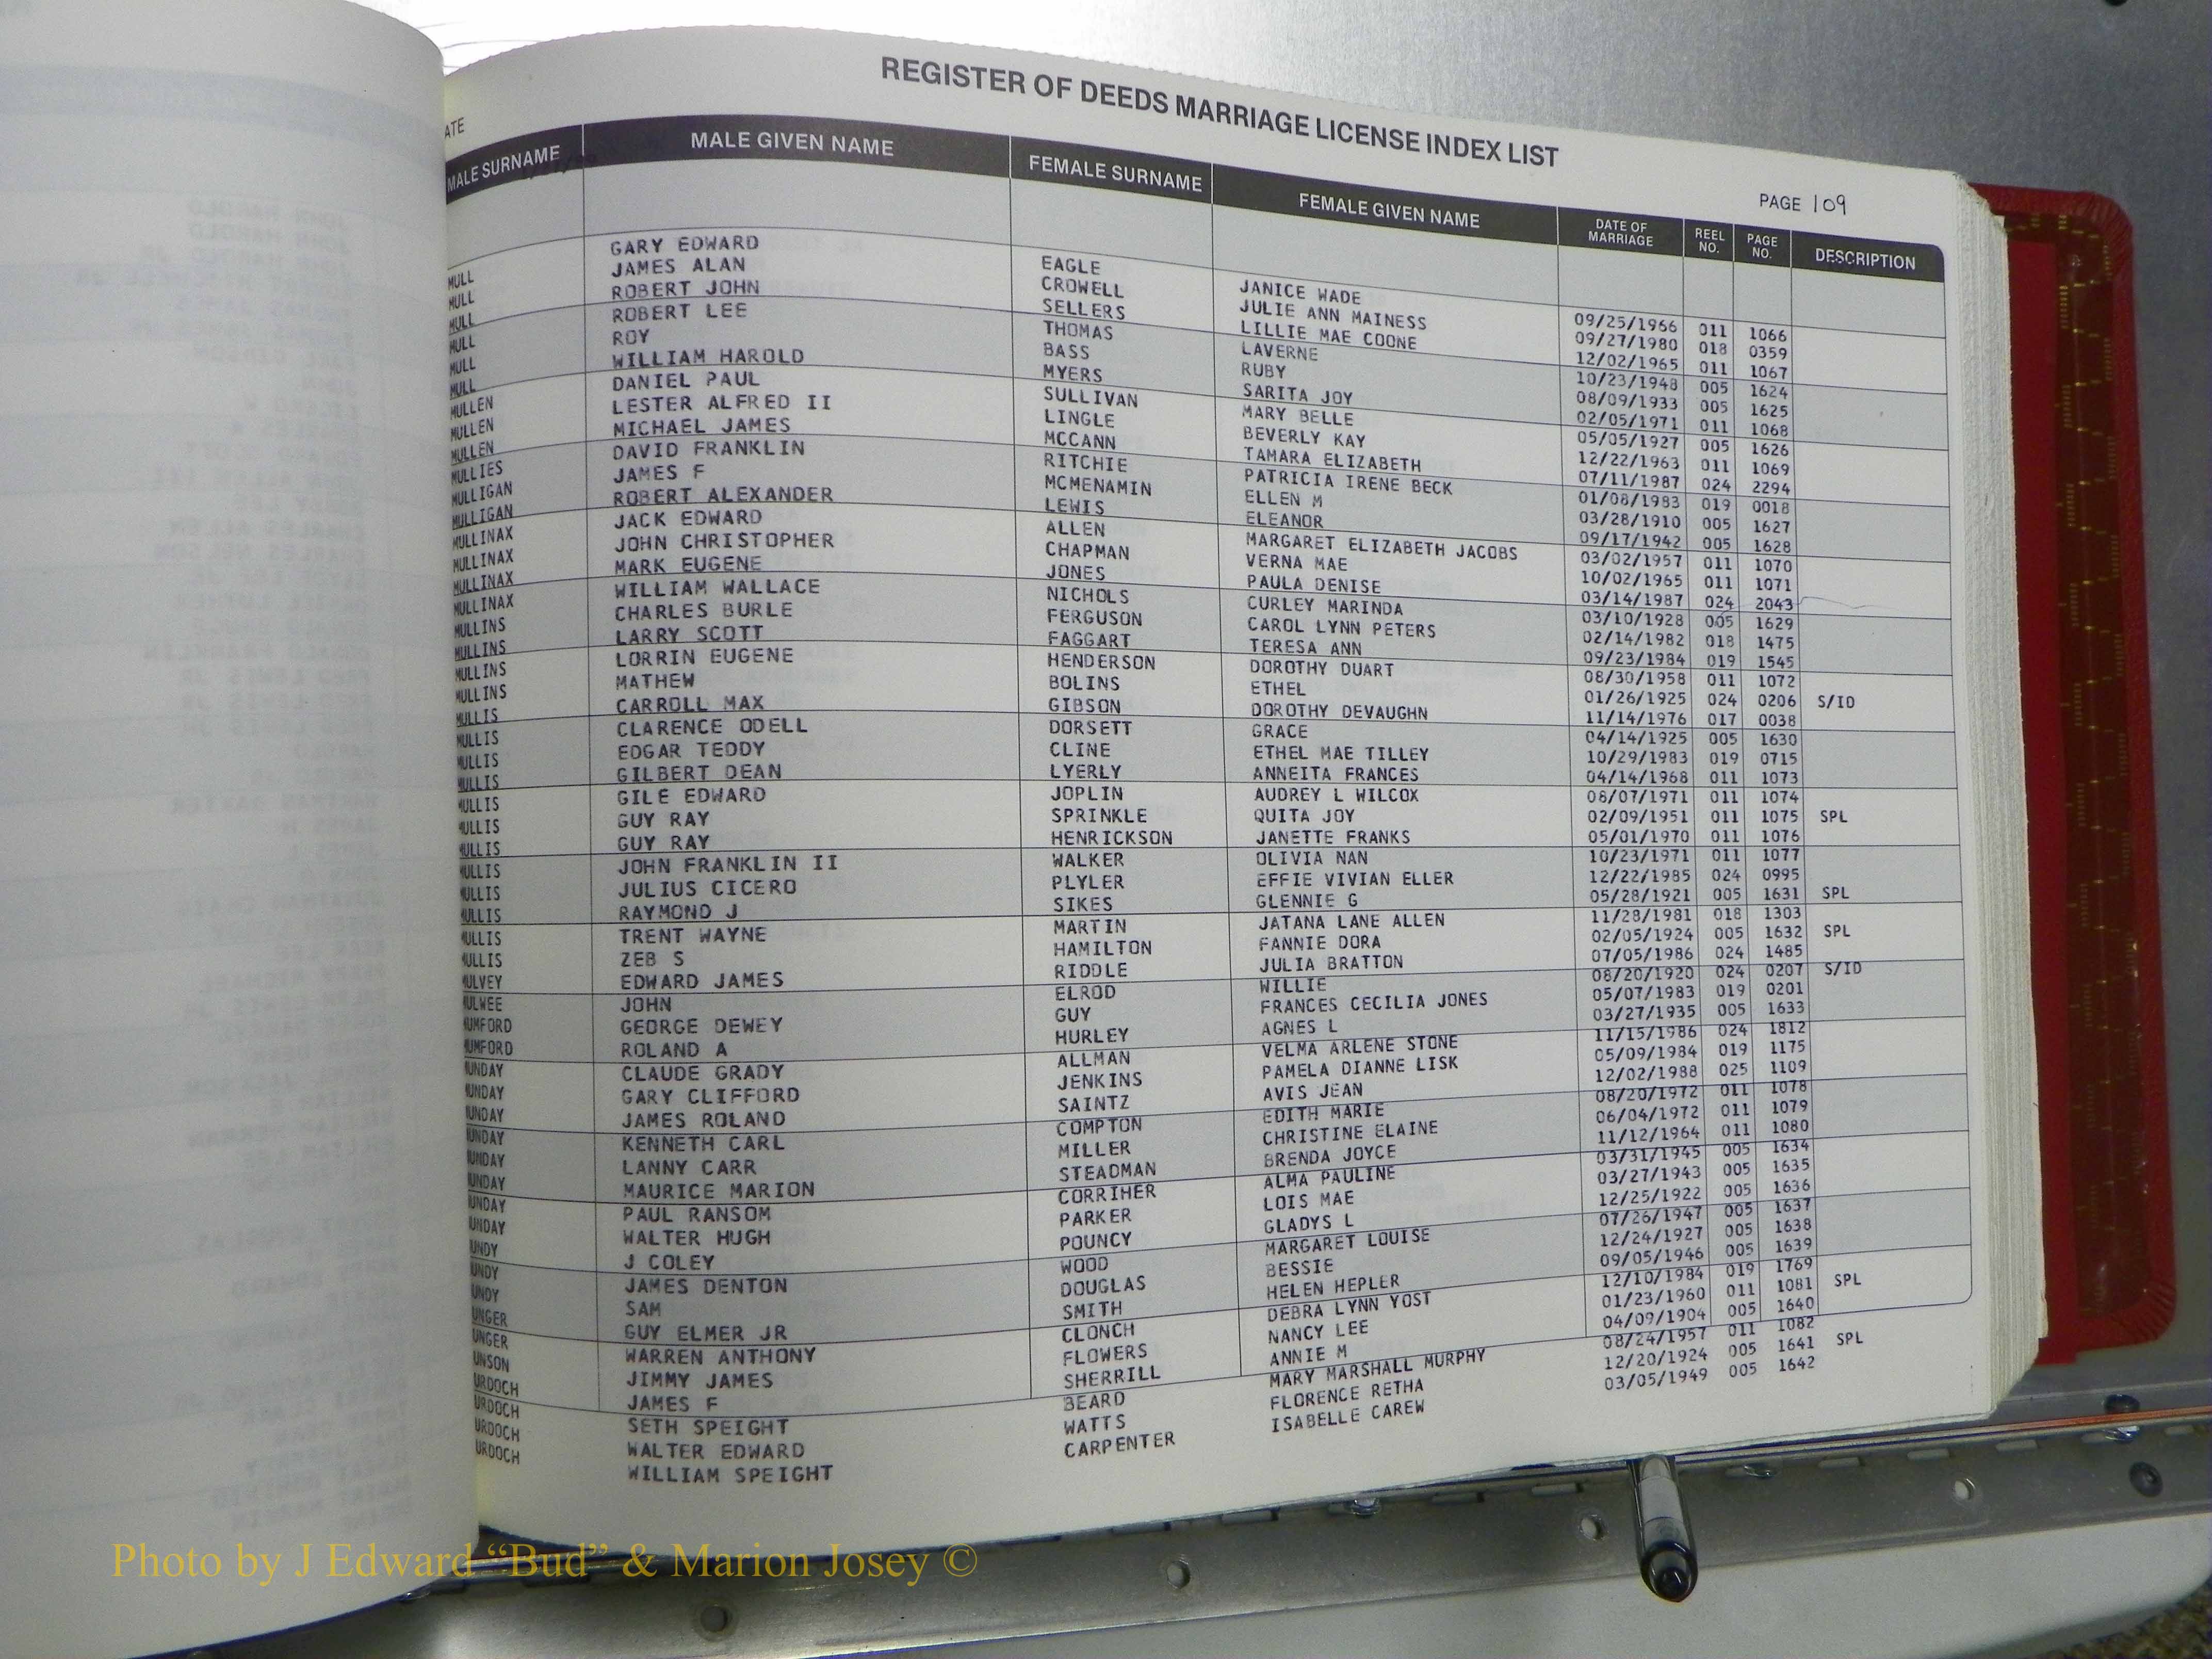 REGISTER OF DEEDS MARRIAGE LICENSE INDEX LIST
ATE
PAGE 109
MALE SURNAME MALE GIVEN NAME FEMALE SURNAME FEMALE GIVEN NAME DATE OF MARRIAGE REEL NO. PAGE NO. DESCRIPTION
MULL GARY EDWARD EAGLE JANICE WADE 09/25/1966 011 1066
MULL JAMES ALAN CROWELL JULIE ANN MAINESS 09/27/1980 018 0359
MULL ROBERT JOHN SELLERS LILLIE MAE COONE 12/02/1965 011 1067
MULL ROBERT LEE THOMAS LAVERNE 10/23/1948 005 1624
MULL ROY BASS RUBY 08/09/1933 005 1625
MULL WILLIAM HAROLD MYERS SARITA JOY 02/05/1971 011 1068
MULLEN DANIEL PAUL SULLIVAN MARY BELLE 05/05/1927 005 1626
MULLEN LESTER ALFRED II LINGLE BEVERLY KAY 12/22/1963 011 1069
MULLEN MICHAEL JAMES MCCANN TAMARA ELIZABETH 07/11/1987 024 2294
MULLIES DAVID FRANKLIN RITCHIE PATRICIA IRENE BECK 01/08/1983 019 0018
MULLIGAN JAMES F MCMENAMIN ELLEN M 03/28/1910 005 1627
MULLIGAN ROBERT ALEXANDER LEWIS ELEANOR 09/17/1942 005 1628
MULLINAX JACK EDWARD ALLEN MARGARET ELIZABETH JACOBS 03/02/1957 011 1070
MULLINAX JOHN CHRISTOPHER CHAPMAN VERNA MAE 10/02/1965 011 1071
MULLINAX MARK EUGENE JONES PAULA DENISE 03/14/1987 024 2043
MULLINAX WILLIAM WALLACE NICHOLS CURLEY MARINDA 03/10/1928 005 1629
MULLINS CHARLES BURLE FERGUSON CAROL LYNN PETERS 02/14/1982 018 1475
MULLINS LARRY SCOTT FAGGART TERESA ANN 09/23/1984 019 1545
MULLINS LORRIN EUGENE HENDERSON DOROTHY DUART 08/30/1958 011 1072
MULLINS MATHEW BOLINS ETHEL 01/26/1925 024 0206 S/ID
MULLIS CARROLL MAX GIBSON DOROTHY DEVAUGHN 11/14/1976 017 0038
MULLIS CLARENCE ODELL DORSETT GRACE 04/14/1925 005 1630
MULLIS EDGAR TEDDY CLINE ETHEL MAE TILLEY 10/29/1983 019 0715
MULLIS GILBERT DEAN LYERLY ANNEITA FRANCES 04/14/1968 011 1073
MULLIS GILE EDWARD JOPLIN AUDREY L WILCOX 08/07/1971 011 1074
MULLIS GUY RAY SPRINKLE QUITA JOY 02/09/1951 011 1075 SPL
MULLIS GUY RAY HENRICKSON JANETTE FRANKS 05/01/1970 011 1076
MULLIS JOHN FRANKLIN II WALKER OLIVIA NAN 10/23/1971 011 1077
MULLIS JULIUS CICERO PLYLER EFFIE VIVIAN ELLER 12/22/1985 024 0995
MULLIS RAYMOND J SIKES GLENNIE G 05/28/1921 005 1631 SPL
MULLIS TRENT WAYNE MARTIN JATANA LANE ALLEN 11/28/1981 018 1303
MULLIS ZEB S HAMILTON FANNIE DORA 02/05/1924 005 1632 SPL
MULVEY EDWARD JAMES RIDDLE JULIA BRATTON 07/05/1986 024 1485
MULWEE JOHN ELROD WILLIE 08/20/1920 024 0207 S/ID
MUMFORD GEORGE DEWEY GUY FRANCES CECILIA JONES 05/07/1983 019 0201
MUMFORD ROLAND A HURLEY AGNES L 03/27/1935 005 1633
MUNDAY CLAUDE GRADY ALLMAN VELMA ARLENE STONE 11/15/1986 024 1812
MUNDAY GARY CLIFFORD JENKINS PAMELA DIANNE LISK 05/09/1984 019 1175
UNDAY JAMES ROLAND SAINTZ AVIS JEAN 12/02/1988 025 1109
UNDAY KENNETH CARL COMPTON EDITH MARIE 08/20/1972 011 1078
UNDAY LANNY CARR MILLER CHRISTINE ELAINE 06/04/1972 011 1079
UNDAY MAURICE MARION STEADMAN BRENDA JOYCE 11/12/1964 011 1080
UNDAY PAUL RANSOM CORRIHER ALMA PAULINE 03/31/1945 005 1634
UNDAY WALTER HUGH PARKER LOIS MAE 03/27/1943 005 1635
UNDY J COLEY POUNCY GLADYS L 12/25/1922 005 1636
UNDY JAMES DENTON WOOD MARGARET LOUISE 07/26/1947 005 1637
UNDY SAM DOUGLAS BESSIE 12/24/1927 005 1638
UNGER GUY ELMER JR SMITH HELEN HEPLER 09/05/1946 005 1639
UNGER WARREN ANTHONY CLONCH DEBRA LYNN YOST 12/10/1984 019 1769
UNSON JIMMY JAMES FLOWERS NANCY LEE 01/23/1960 011 1081 SPL
URDOCH JAMES F SHERRILL ANNIE M 04/09/1904 005 1640
URDOCH SETH SPEIGHT BEARD MARY MARSHALL MURPHY 08/24/1957 011 1082
URDOCH WALTER EDWARD WATTS FLORENCE RETHA 12/20/1924 005 1641 SPL
URDOCH WILLIAM SPEIGHT CARPENTER ISABELLE CAREW 03/05/1949 005 1642
Photo by J Edward “Bud” & Marion Josey ©